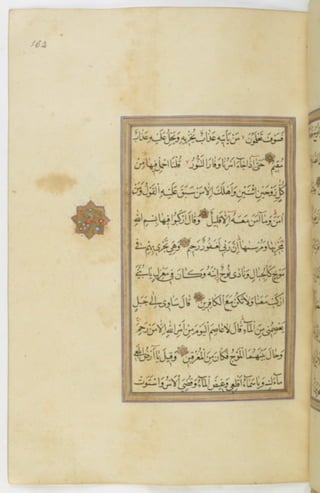 162
فَسَوْفَ تَعْلَمُونَ مَنْ يَأْتِيهِ عَذَابٌ يُخْزِيهِ وَيَحِلُّ عَلَيْهِ عَذَابٌ
مُقِيمٌ حَتَّى إِذَا جَاءَ أَمْرُنَا وَفَارَ التَّنُّورُ قُلْنَا احْمِلْ فِيهَا مِنْ
كُلٍّ زَوْجَيْنِ اثْنَيْنِ وَأَهْلَكَ إِلَّا مَنْ سَبَقَ عَلَيْهِ الْقَوْلُ وَمَنْ
آمَنَ وَمَا آمَنَ مَعَهُ إِلَّا قَلِيلٌ وَقَالَ ارْكَبُوا فِيهَا بِسْمِ اللَّهِ
مَجْرِيهَا وَمُرْسَيهَا إِنَّ رَبِّي لَغَفُورٌ رَحِيمٌ وَهِيَ تَجْرِي بِهِمْ فِي
مَوْجٍ كَالْجِبَالِ وَنَادَى نُوحٌ ابْنَهُ وَكَانَ فِي مَعْزِلٍ يَا بُنَيَّ
ارْكَبْ مَعَنَا وَلَا تَكُنْ مَعَ الْكَافِرِينَ قَالَ سَآوِي إِلَى جَبَلٍ
يَعْصِمُنِي مِنَ الْمَاءِ قَالَ لَا عَاصِمَ الْيَوْمَ مِنْ أَمْرِ اللَّهِ إِلَّا مَنْ رَحِمَ
وَحَالَ بَيْنَهُمَا الْمَوْجُ فَكَانَ مِنَ الْمُغْرَقِينَ وَقِيلَ يَا أَرْضُ ابْلَعِي
مَاءَكِ وَيَا سَمَاءُ أَقْلِعِي وَغِيضَ الْمَاءُ وَقُضِيَ الْأَمْرُ وَاسْتَوَتْ